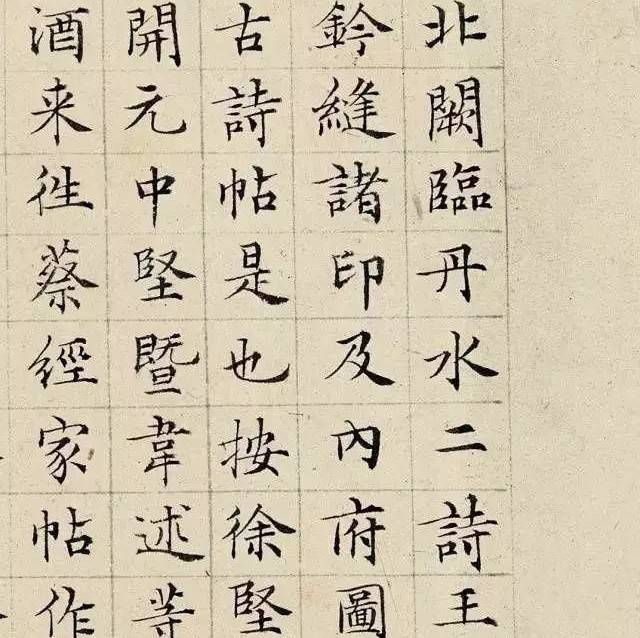 北闕臨丹水二詩王
鈐縫諸印及內府圖
古詩帖是也按徐堅
開元中堅暨韋述等
酒来徃蔡經家帖作